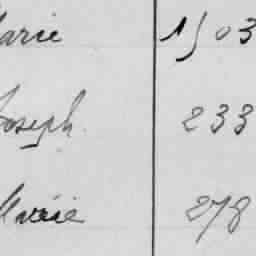 Marie 1503
Joseph 233
Marie 278